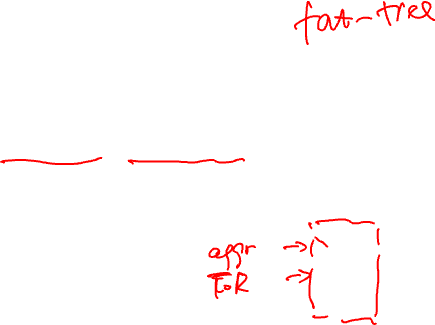 fat-tree
aggr
ToR